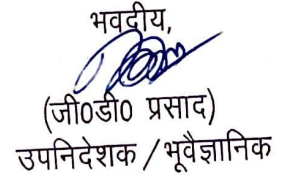 भवदीय,
(जी0डी0 प्रसाद)
उपनिदेशक / भूवैज्ञानिक